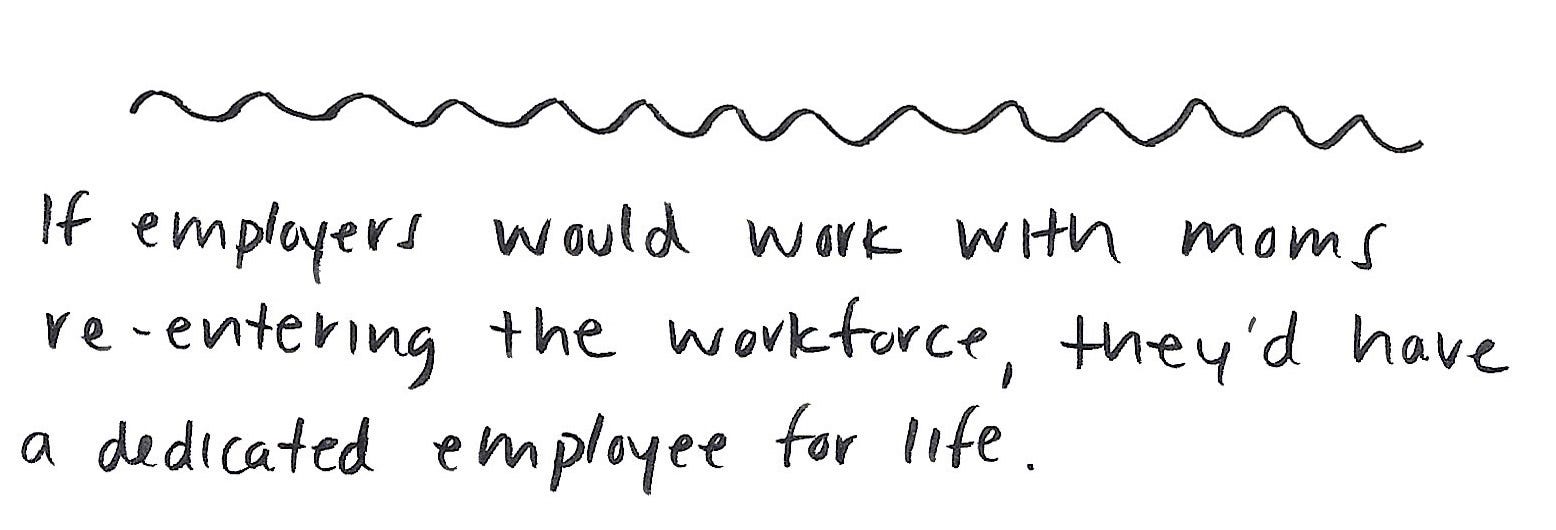 If employers would work with moms
re-entering the workforce, they'd have
a dedicated employee for life.